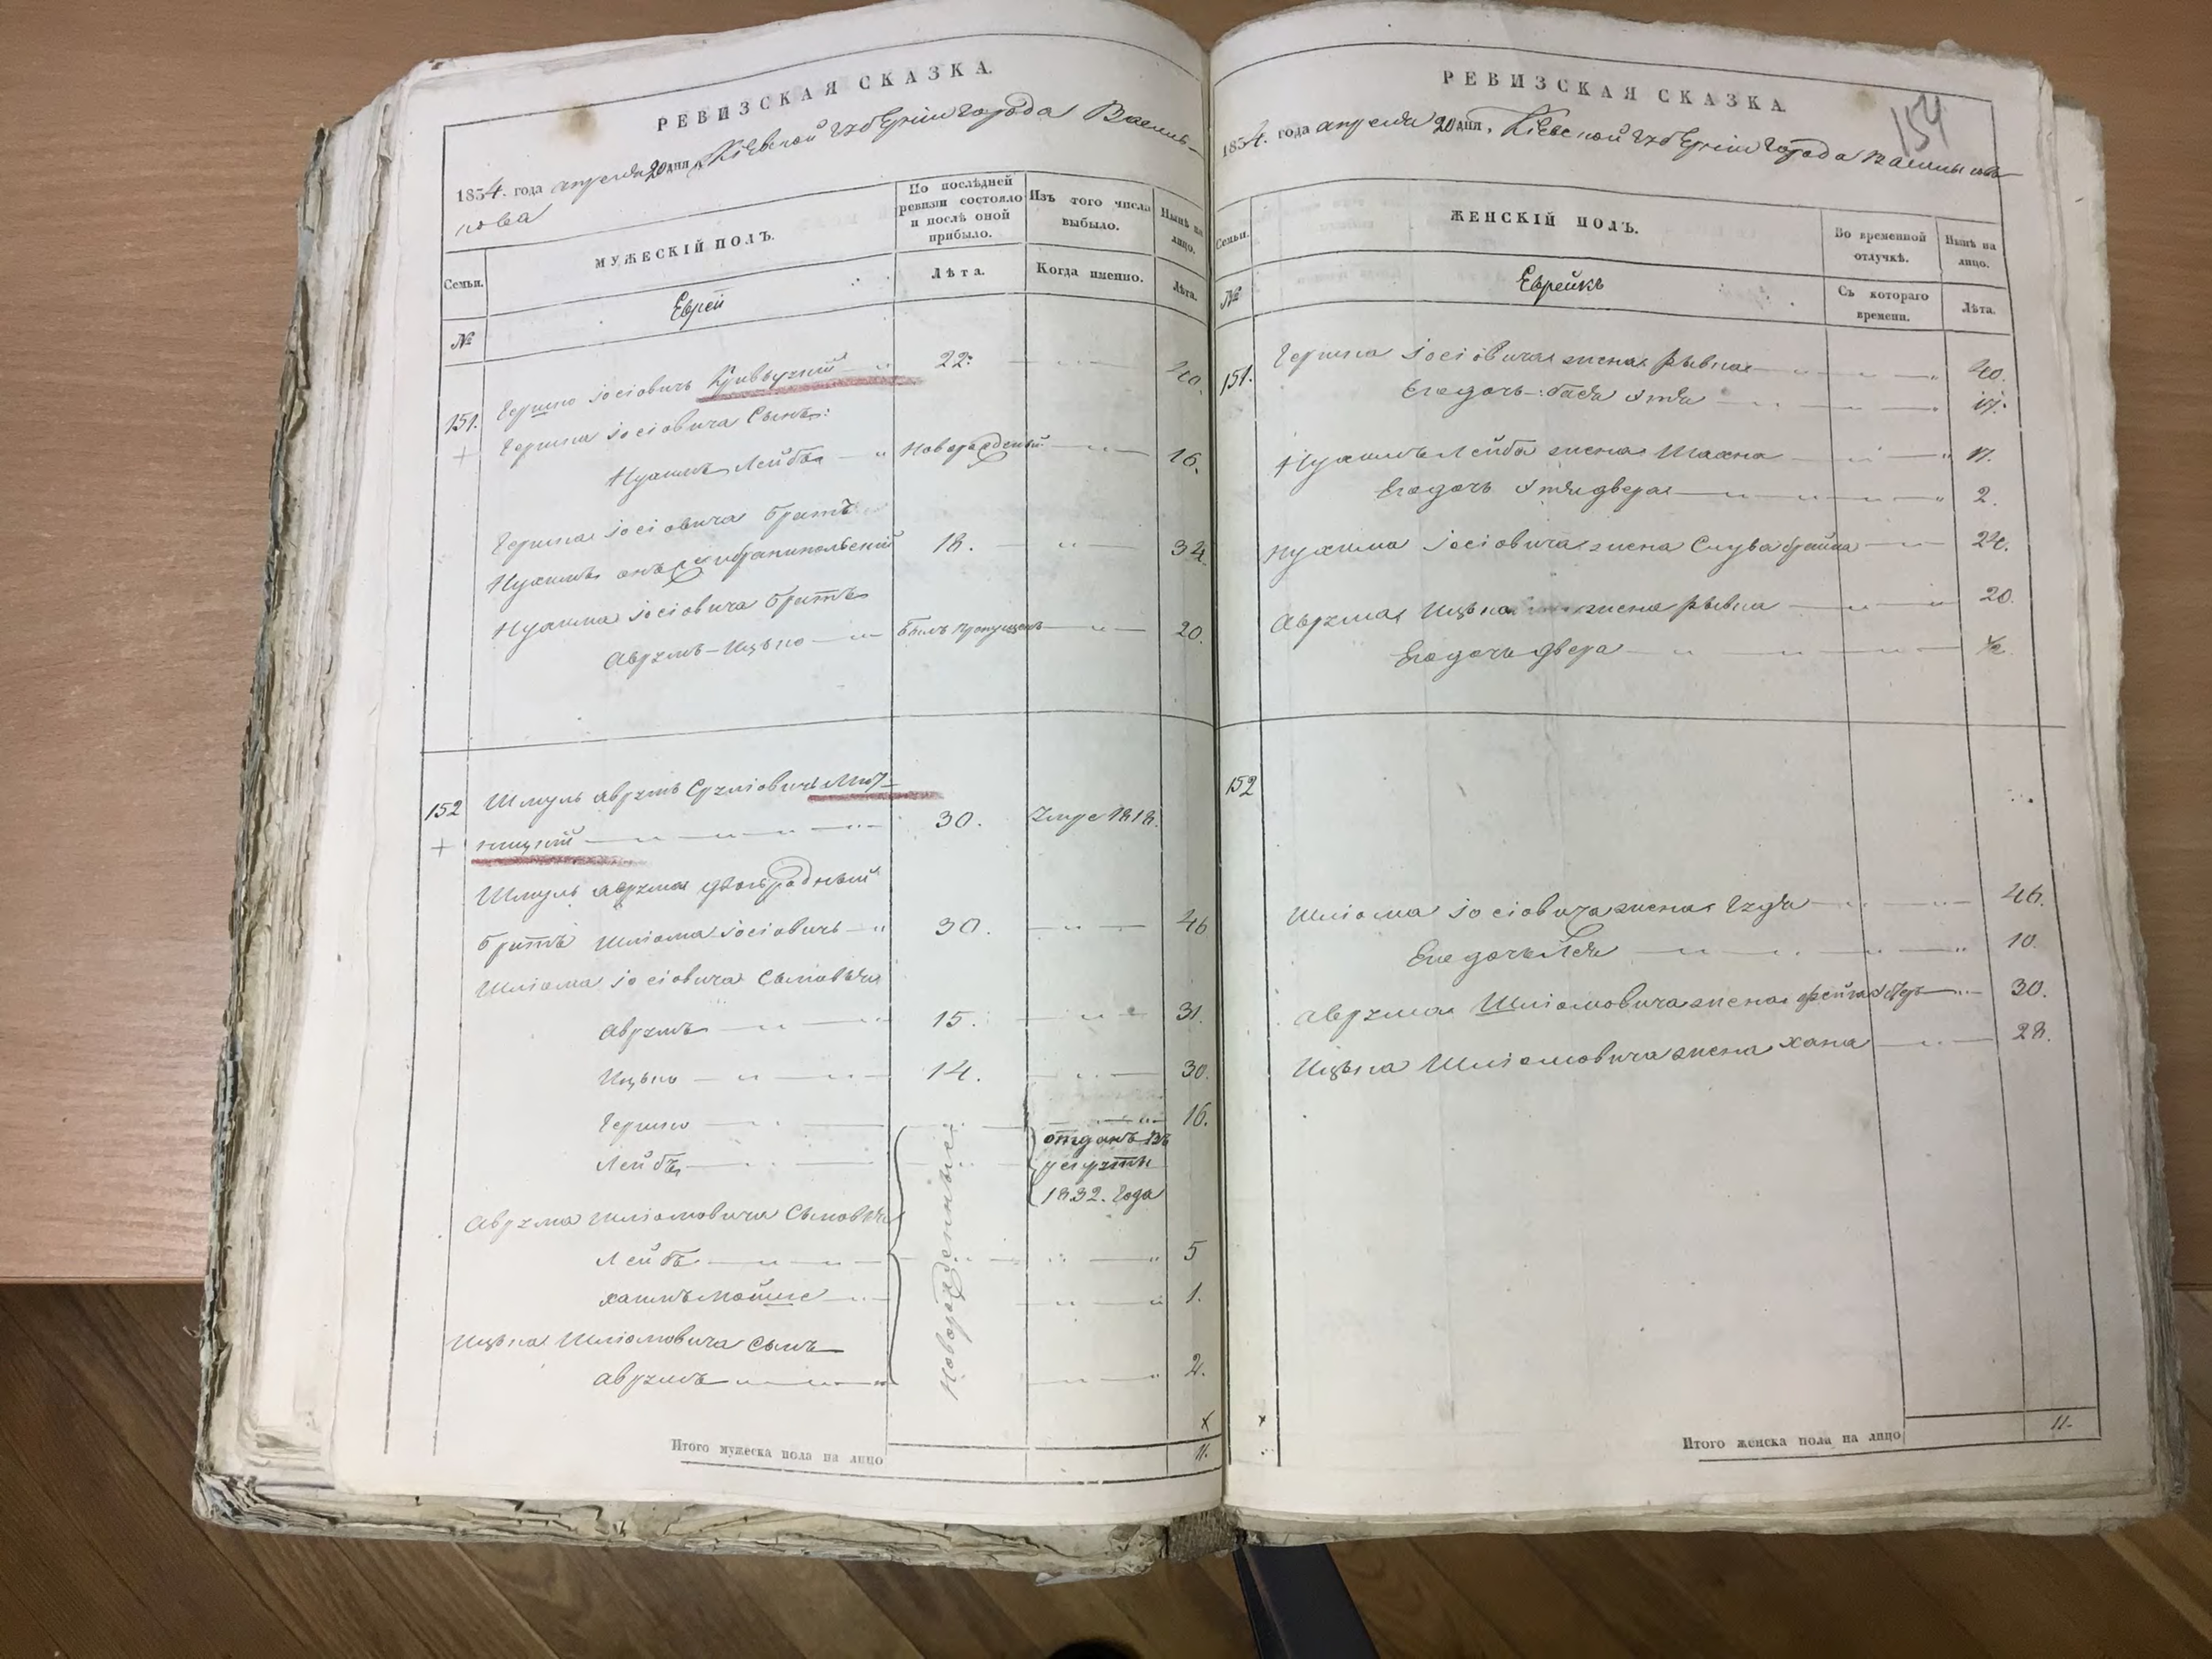 РЕВИЗСКАЯ СКАЗКА.
1834. года апреля 20 дня, Кіевской губерніи города Василь-
кова
Семьи.
МУЖЕСКІЙ ПОЛЪ.
По послѣдней ревизіи состояло и послѣ оной прибыло.
Изъ того числа выбыло.
Нынѣ на лицо.
№
Еврей
Лѣта.
Когда именно.
Лѣта.
151. Гершко Іосіовичъ 22. 40.
Гершка Іосіовича Сынъ:
Нухимъ Лейба Новорожденный 16.
Гершка Іосіовича братъ
Нухимъ онъ же 18. 34.
Нухима Іосіовича братъ
Аврумъ-Ицько былъ пропущенъ 20.
152 Шмуль Аврумъ Сруліовичъ
30. Умре 1818.
Шмуль Аврума двоюродный
братъ Шліома Іосіовичъ 30. 46
Шліома Іосіовича Сыновья
Аврумъ 15. 31.
Ицько 14. 30.
Гершко 16.
Лейба отданъ въ
рекруты
1832. года
Новорожденные
Аврума Шліомовича Сыновья
Лейба 5
Хаимъ Мошко 1.
Ицька Шліомовича сынъ
Аврумъ 2.
Итого мужеска пола на лицо 11.
РЕВИЗСКАЯ СКАЗКА.
154
1834. года апреля 20 дня, Кіевской губерніи города Василькова
Семьи.
ЖЕНСКІЙ ПОЛЪ.
Во временной отлучкѣ.
Нынѣ на лицо.
№
Еврейкѣ
Съ котораго времени.
Лѣта.
151. Гершка Іосіовича жена Рывка 40.
Его дочь: Бася 17.
Нухимъ Лейба жена 17.
Его дочь двера 2.
Нухима Іосіовича жена 24.
Аврума Ицька жена Рывка 20.
Его дочь Двера ½.
152
Шліома Іосіовича жена 46.
Его дочь Лея 10.
Аврума Шліомовича жена 30.
Ицька Шліомовича жена Хана 28.
Итого женска пола на лицо 11.